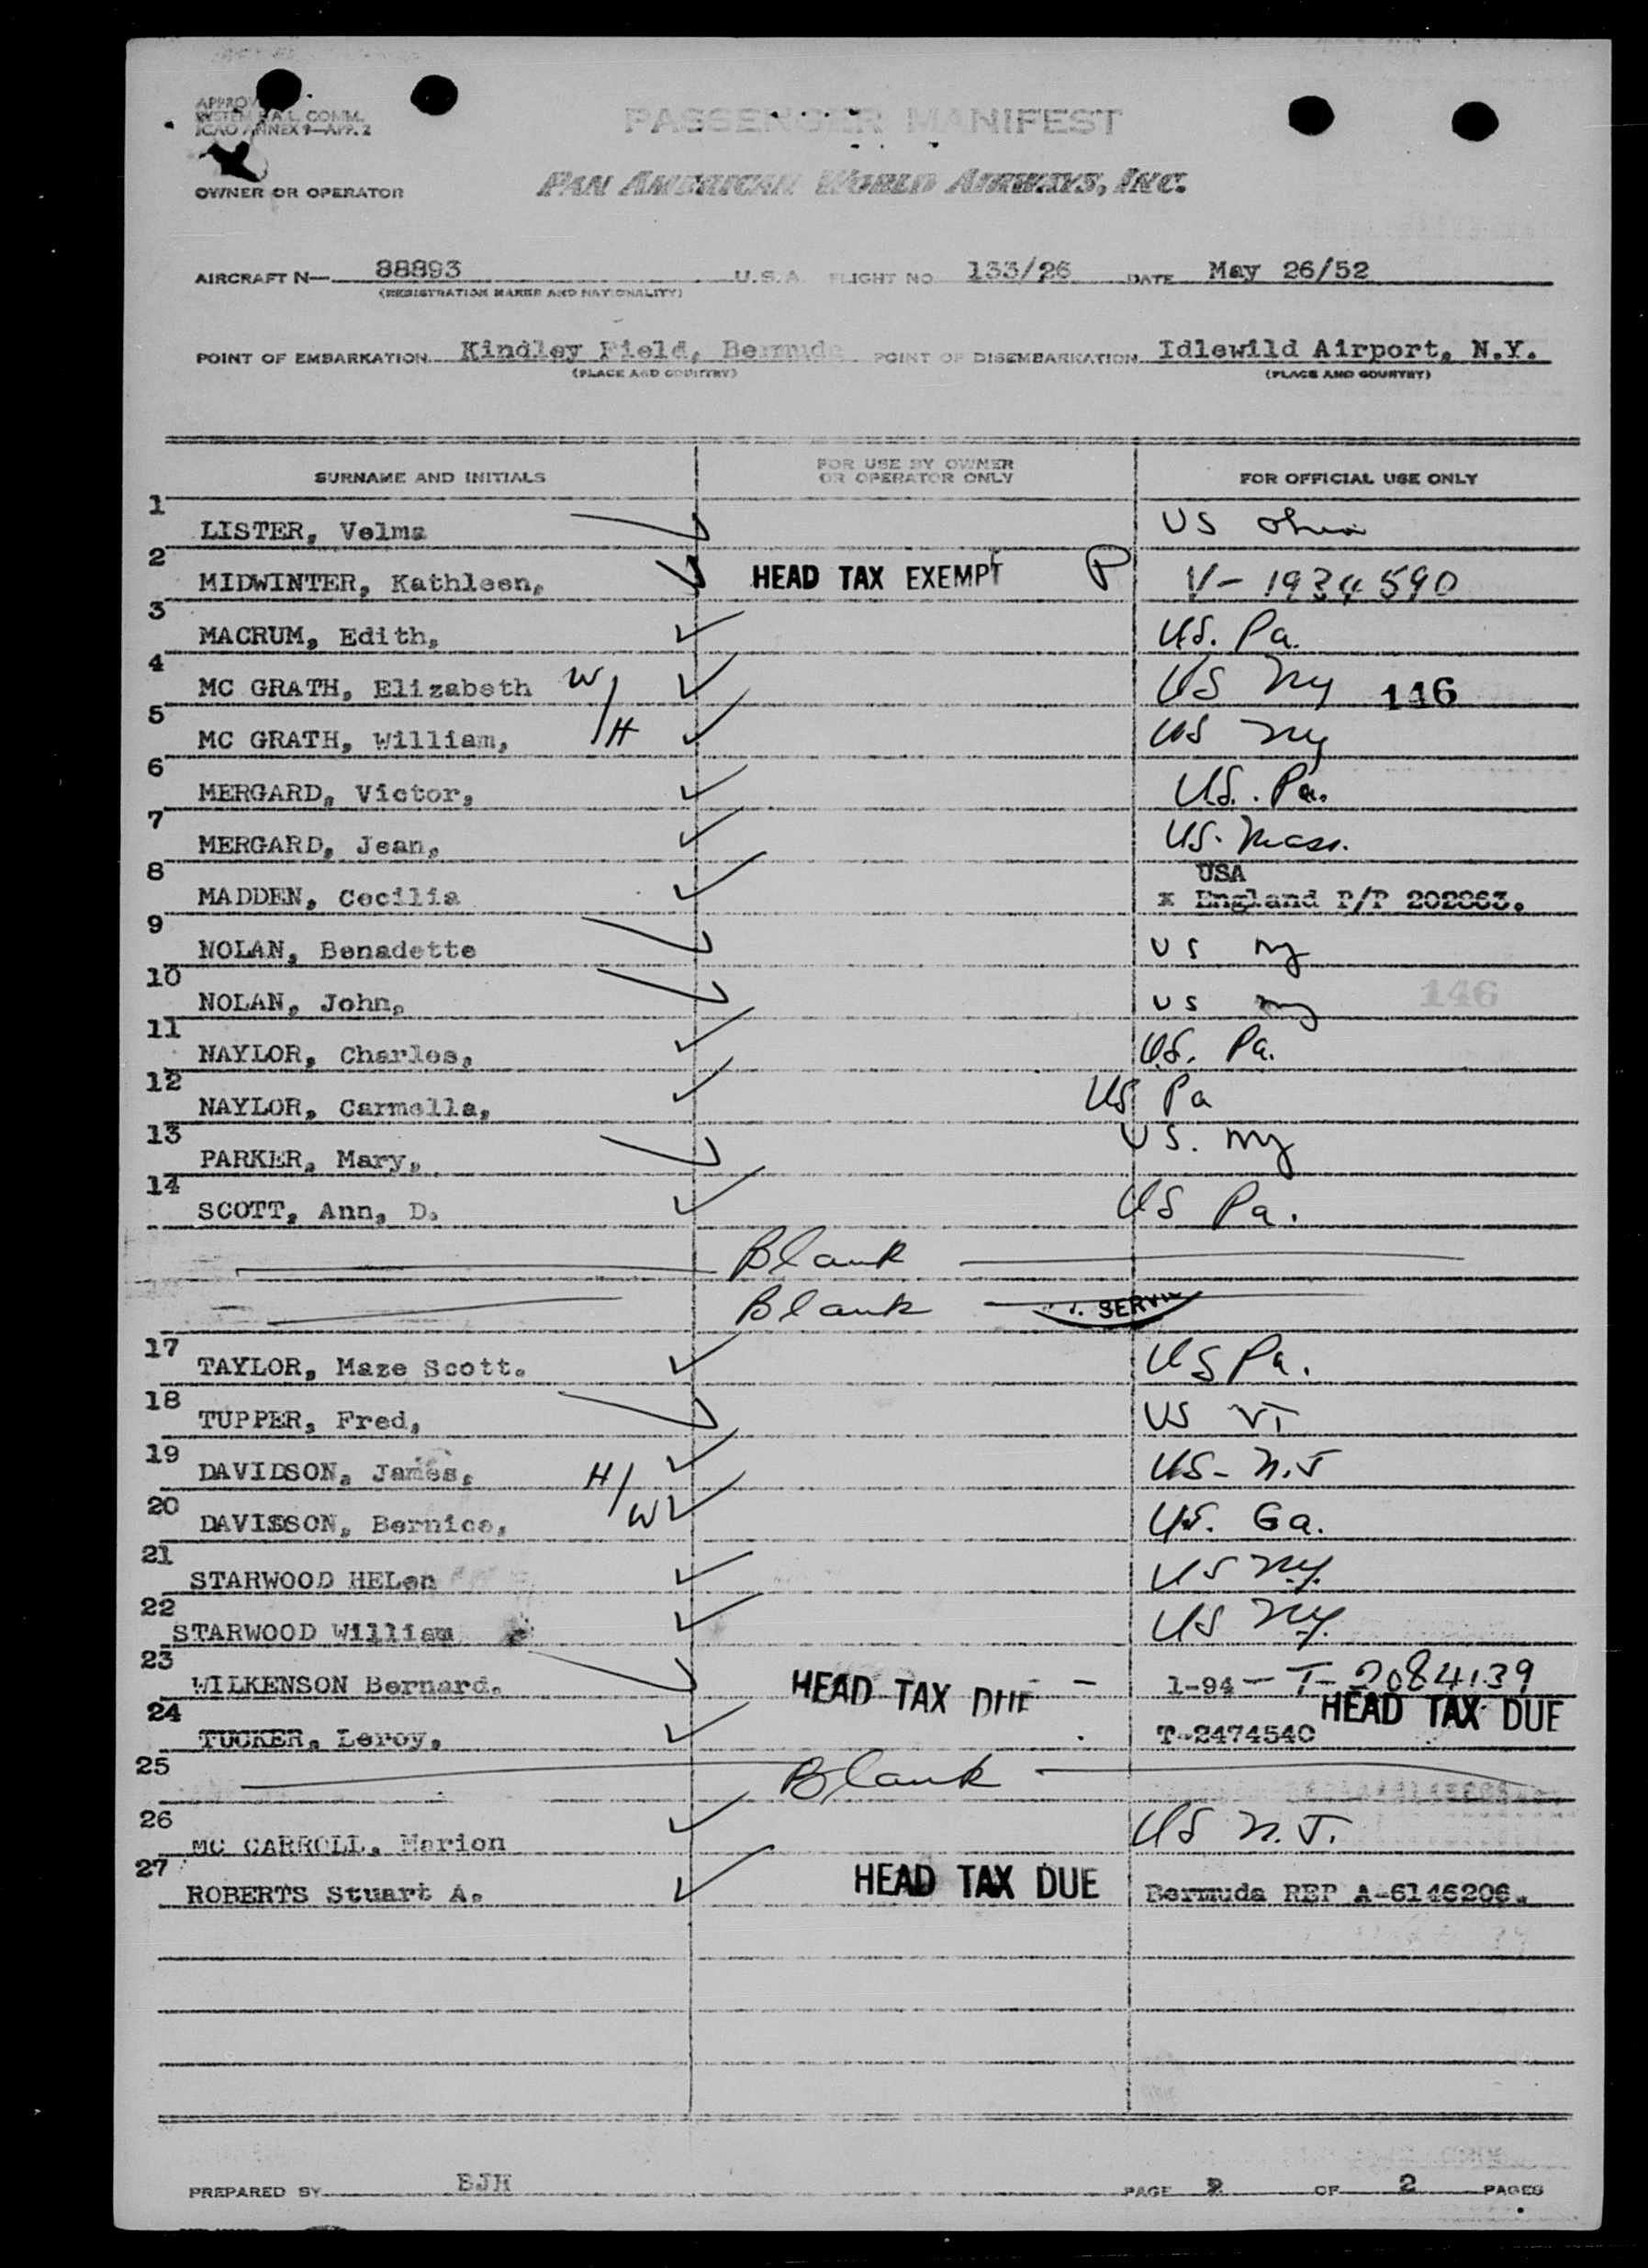 APPROV
SYSTEM F.A.L. COMM.
ICAO ANNEX 9—APP. 2
PASSENGER MANIFEST
OWNER OR OPERATOR PAN AMERICAN WORLD AIRWAYS, INC.
AIRCRAFT N— 88893 U.S.A. FLIGHT NO 133/26 DATE May 26/52
(REGISTRATION MARKS AND NATIONALITY)
POINT OF EMBARKATION Kindley Field, Bermuda POINT OF DISEMBARKATION Idlewild Airport, N.Y.
(PLACE AND COUNTRY) (PLACE AND COUNTRY)
SURNAME AND INITIALS FOR USE BY OWNER OR OPERATOR ONLY FOR OFFICIAL USE ONLY
1 LISTER, Velma US Ohio
2 MIDWINTER, Kathleen, HEAD TAX EXEMPT P V-1934590
3 MACRUM, Edith, US. Pa.
4 MC GRATH, Elizabeth W/ US NY 146
5 MC GRATH, William, /H US NY
6 MERGARD, Victor, US. Pa.
7 MERGARD, Jean, US. Mass.
USA
8 MADDEN, Cecilia x England P/P 202863.
9 NOLAN, Benadette US NY
10 NOLAN, John, US NY
146
11 NAYLOR, Charles, US. Pa.
12 NAYLOR, Carmella, US Pa
13 PARKER, Mary, US. NY
14 SCOTT, Ann, D. US Pa.
Blank
Blank
. SERVI
17 TAYLOR, Maze Scott. US Pa.
18 TUPPER, Fred, US VT
19 DAVIDSON, James, H/ US- N.J
20 DAVISSON, Bernice, /W US. Ga.
21 STARWOOD HELen US NY.
22 STARWOOD William US NY.
23 WILKENSON Bernard. HEAD TAX DUE - 1-94 - T-2084139
HEAD TAX DUE
24 TUCKER, Leroy, T-2474540
25 Blank
26 MC CARROLL, Marion US N.J.
27 ROBERTS Stuart A. HEAD TAX DUE Bermuda REP A-6146206.
PREPARED BY BJH PAGE 2 OF 2 PAGES